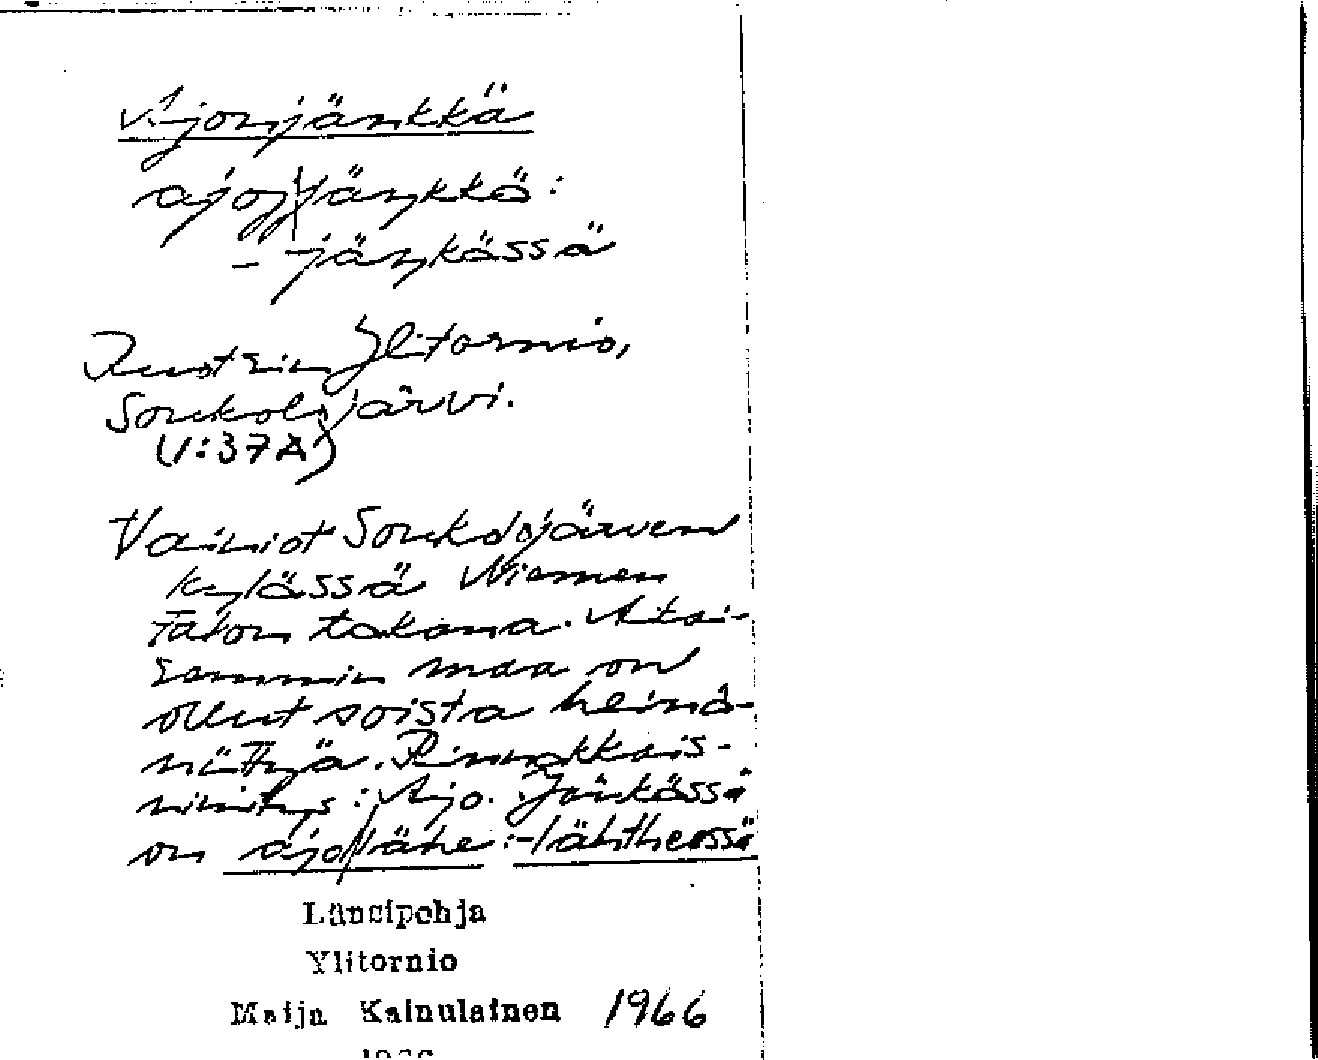 Ajonjänkkä
ajoj|jäŋkkä:
- -jäŋkässä
Ruotsin Ylitornio,
Soukolojärvi.
(1:37A)
Vainiot Soukolojärven
kylässä Niemen
talon takana. Aikai-
semmin maa on
ollut soista heinä-
niittyä. Rinnakkais-
nimitys: Ajo. Jänkässä
on ajo|lähe: -lähtheossä
Länsipohja
Ylitornio
Maija Kainulainen 1966